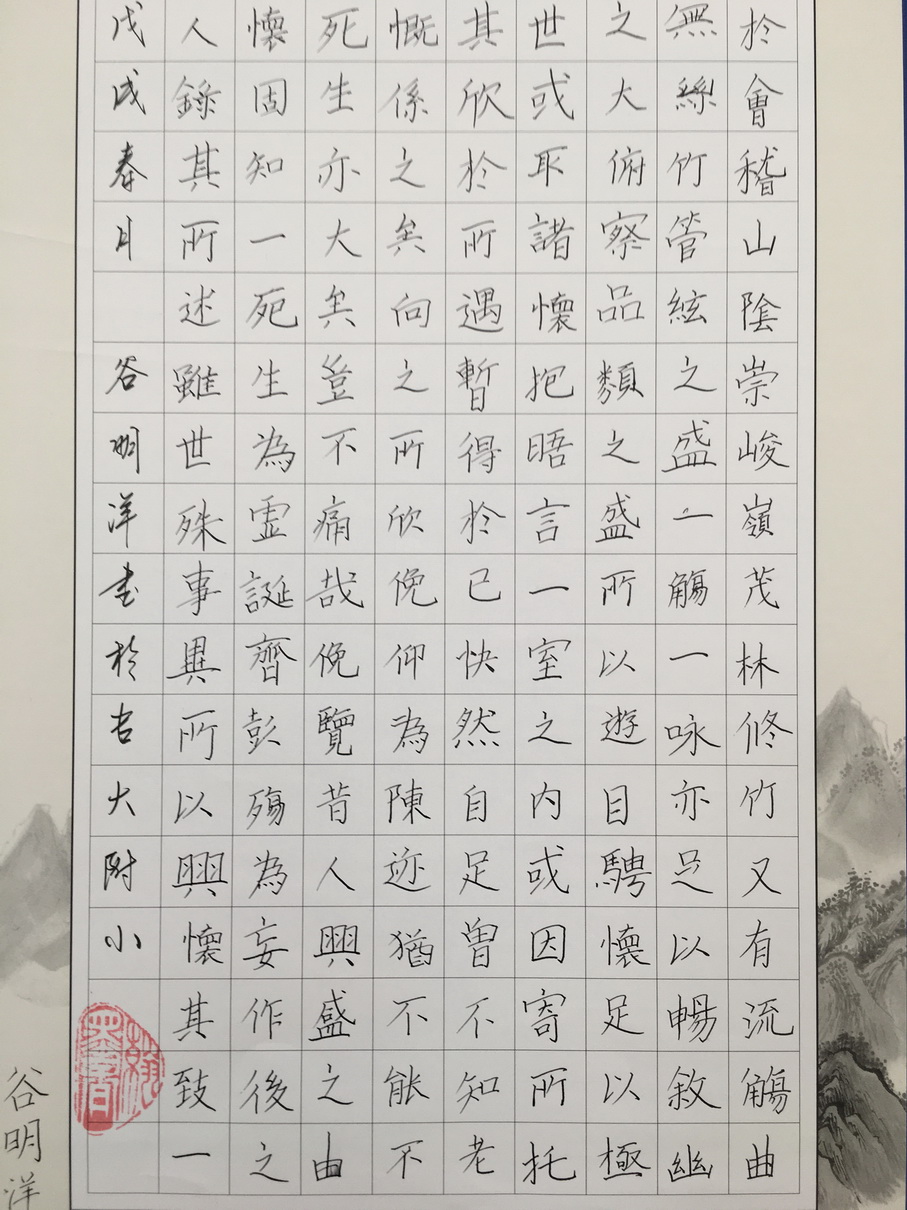 於會稽山陰崇峻嶺茂林修竹又有流觴曲
無絲竹管絃之盛一觴一咏亦足以暢敘幽
之大俯察品類之盛所以遊目騁懷足以極
世或取諸懷抱晤言一室之内或因寄所托
其欣於所遇暫得於己快然自足曽不知老
慨係之矣向之所欣俛仰為陳迹猶不能不
死生亦大矣豈不痛哉俛覽昔人興盛之由
懷固知一死生為虛誕齊彭殤為妄作後之
人錄其所述雖世殊事異所以興懷其致一
戊戌春月 谷明洋書於吉大附小
翰墨書香
谷明洋